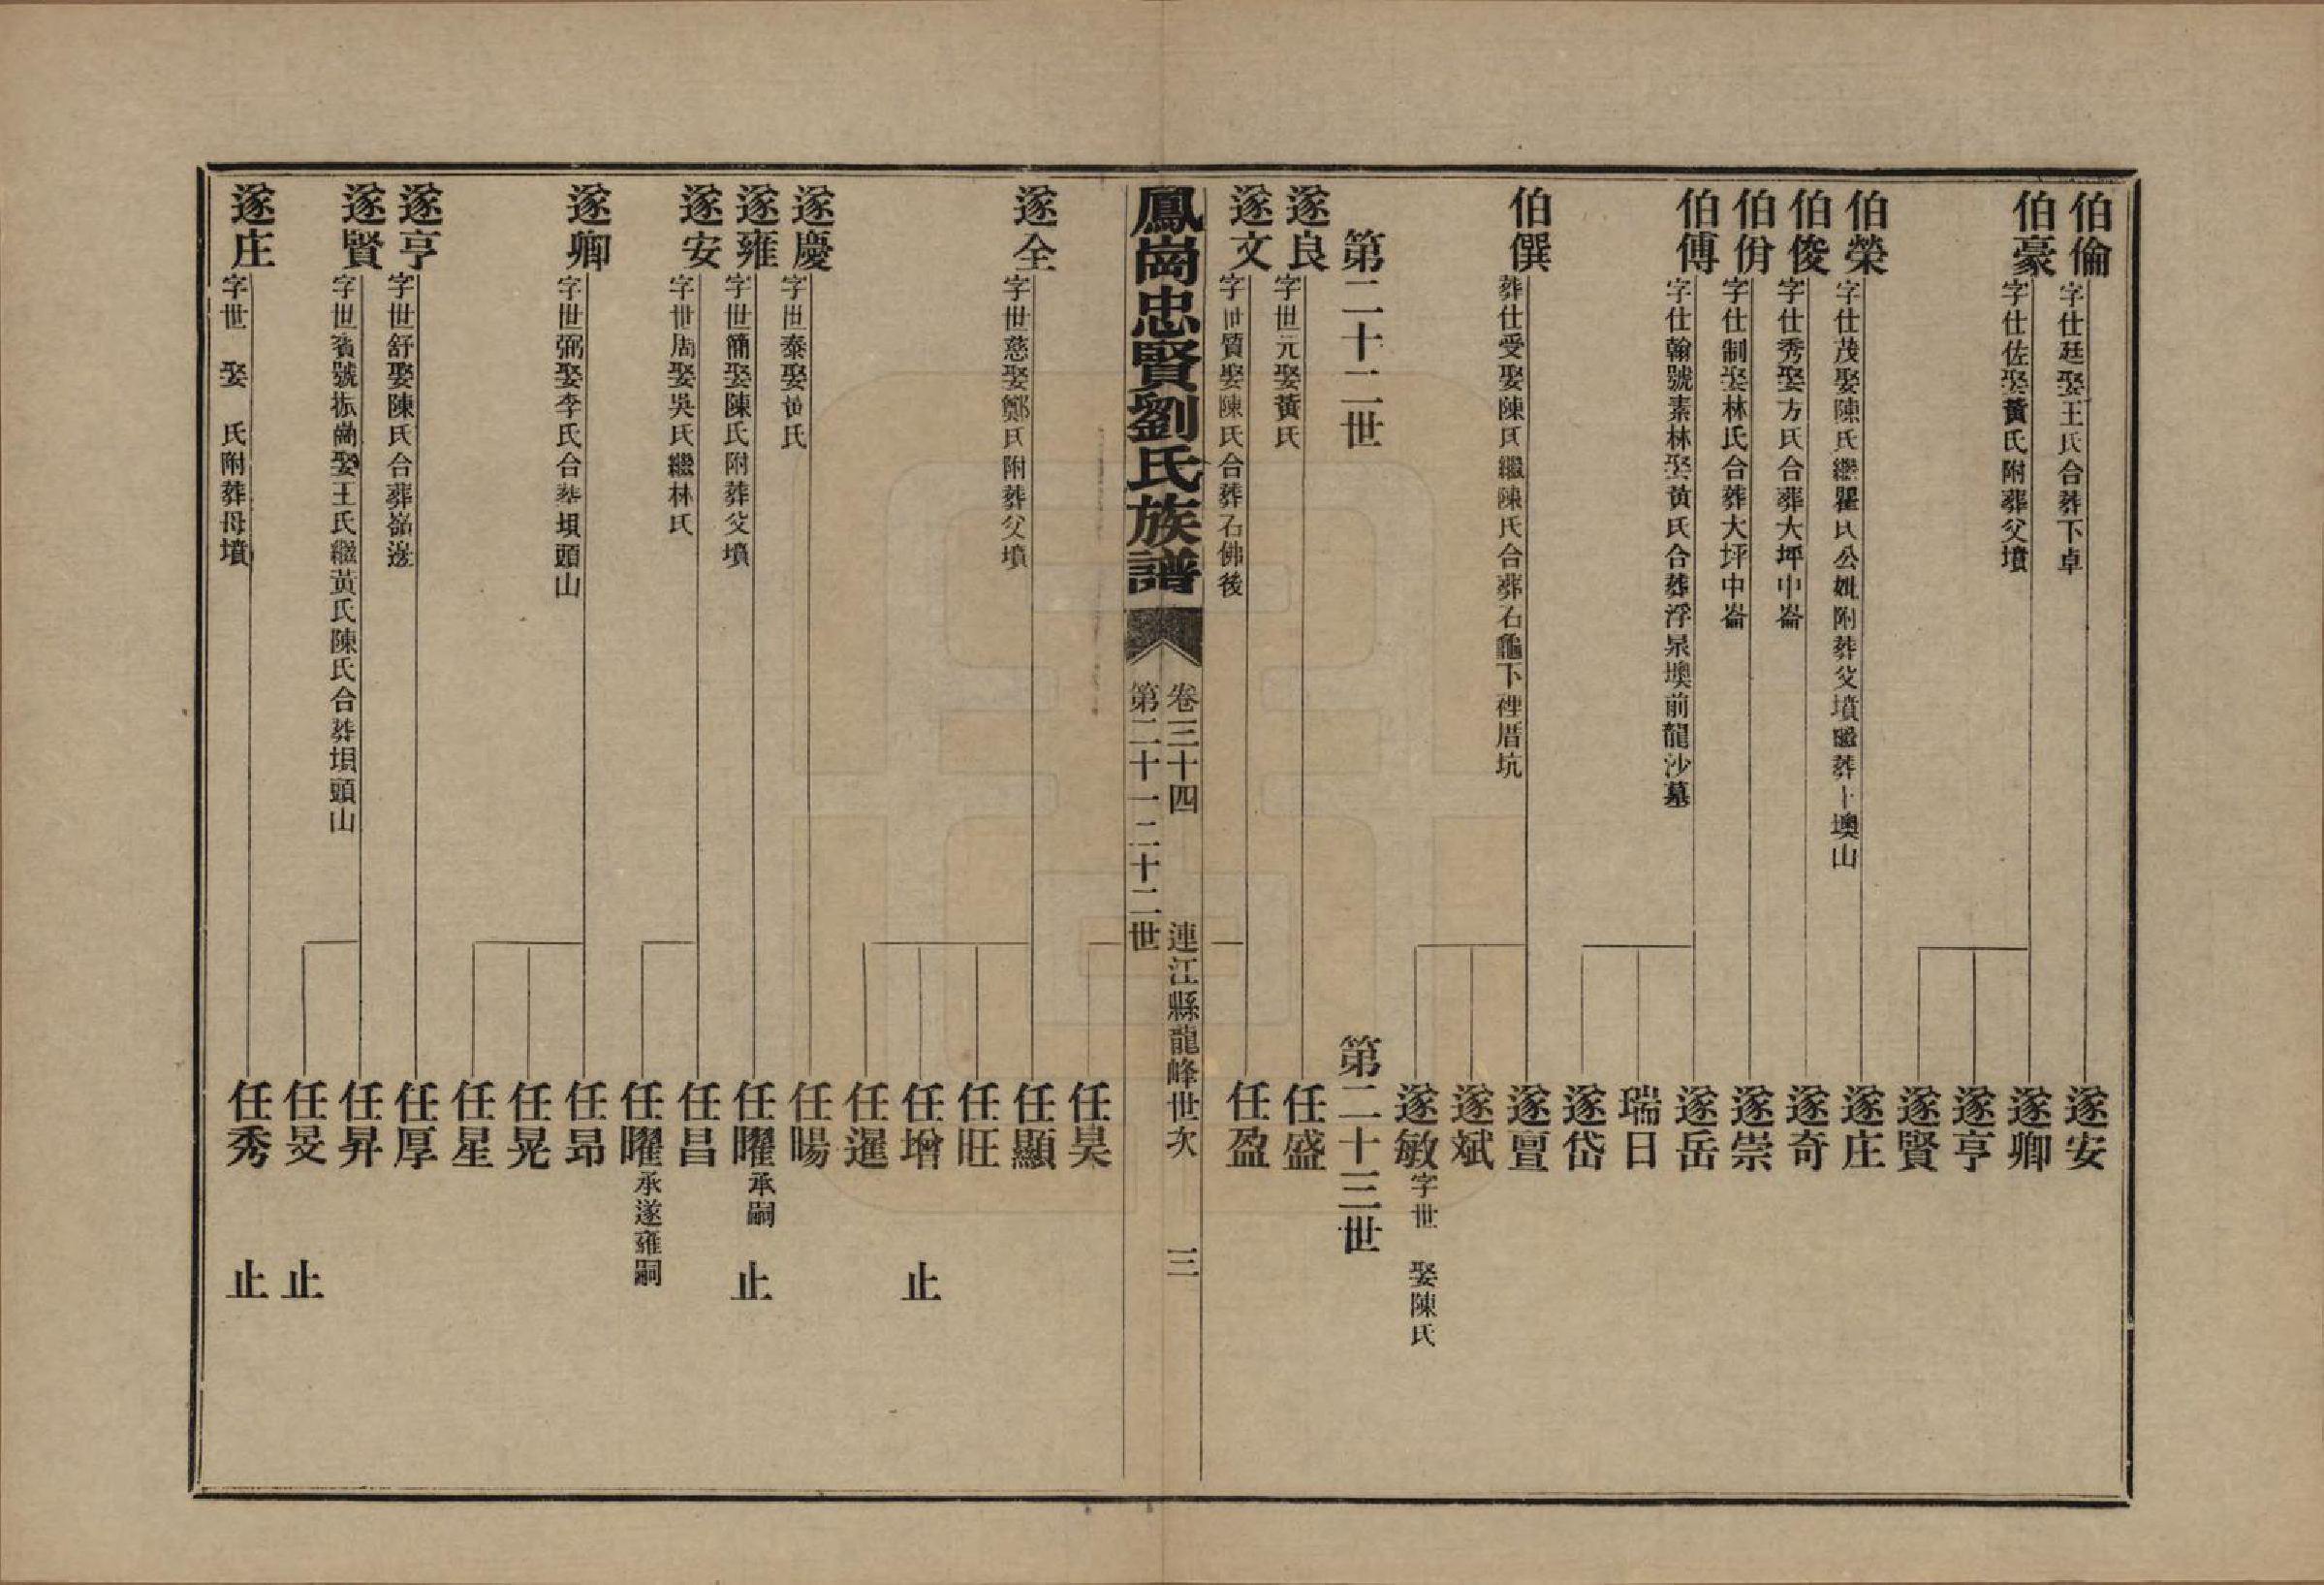 伯倫字仕廷娶王氏合葬下卓 遂安
伯豪字仕佐娶黃氏附葬父墳 遂卿
遂亨
遂賢
伯榮字仕茂娶陳氏繼瞿氏公妣附葬父墳繼葬上墺山 遂庄
伯俊字仕秀娶方氏合葬大坪中崙 遂奇
伯佾字仕制娶林氏合葬大坪中崙 遂崇
伯傅字仕翰號素林娶黃氏合葬浮泉墺前龍沙墓 遂岳
瑞日
遂岱
伯僎葬仕受娶陳氏繼陳氏合葬石龜下裡厝坑 遂亶
遂斌
遂敏字世 娶陳氏
第二十二世 第二十三世
遂良字世元娶黃氏 任盛
遂文字世質娶陳氏合葬石佛後 任盈
鳳崗忠賢劉氏族譜
卷三十四 連江縣龍峰世次 三
第二十一二十二世
任昊
遂全字世慈娶鄭氏附葬父墳 任顯
任旺
任增 止
任暹
遂慶字世泰娶黃氏 任暘
遂雍字世簡娶陳氏附葬父墳 任曜承嗣 止
遂安字世周娶吳氏繼林氏 任昌
任曜承遂雍嗣
遂卿字世弼娶李氏合葬垻頭山 任昂
任晃
任星
遂亨字世舒娶陳氏合葬嵛邊 任厚
遂賢字世賓號振崗娶王氏繼黃氏陳氏合葬垻頭山 任昇
任旻 止
遂庄字世 娶 氏附葬母墳 任秀 止